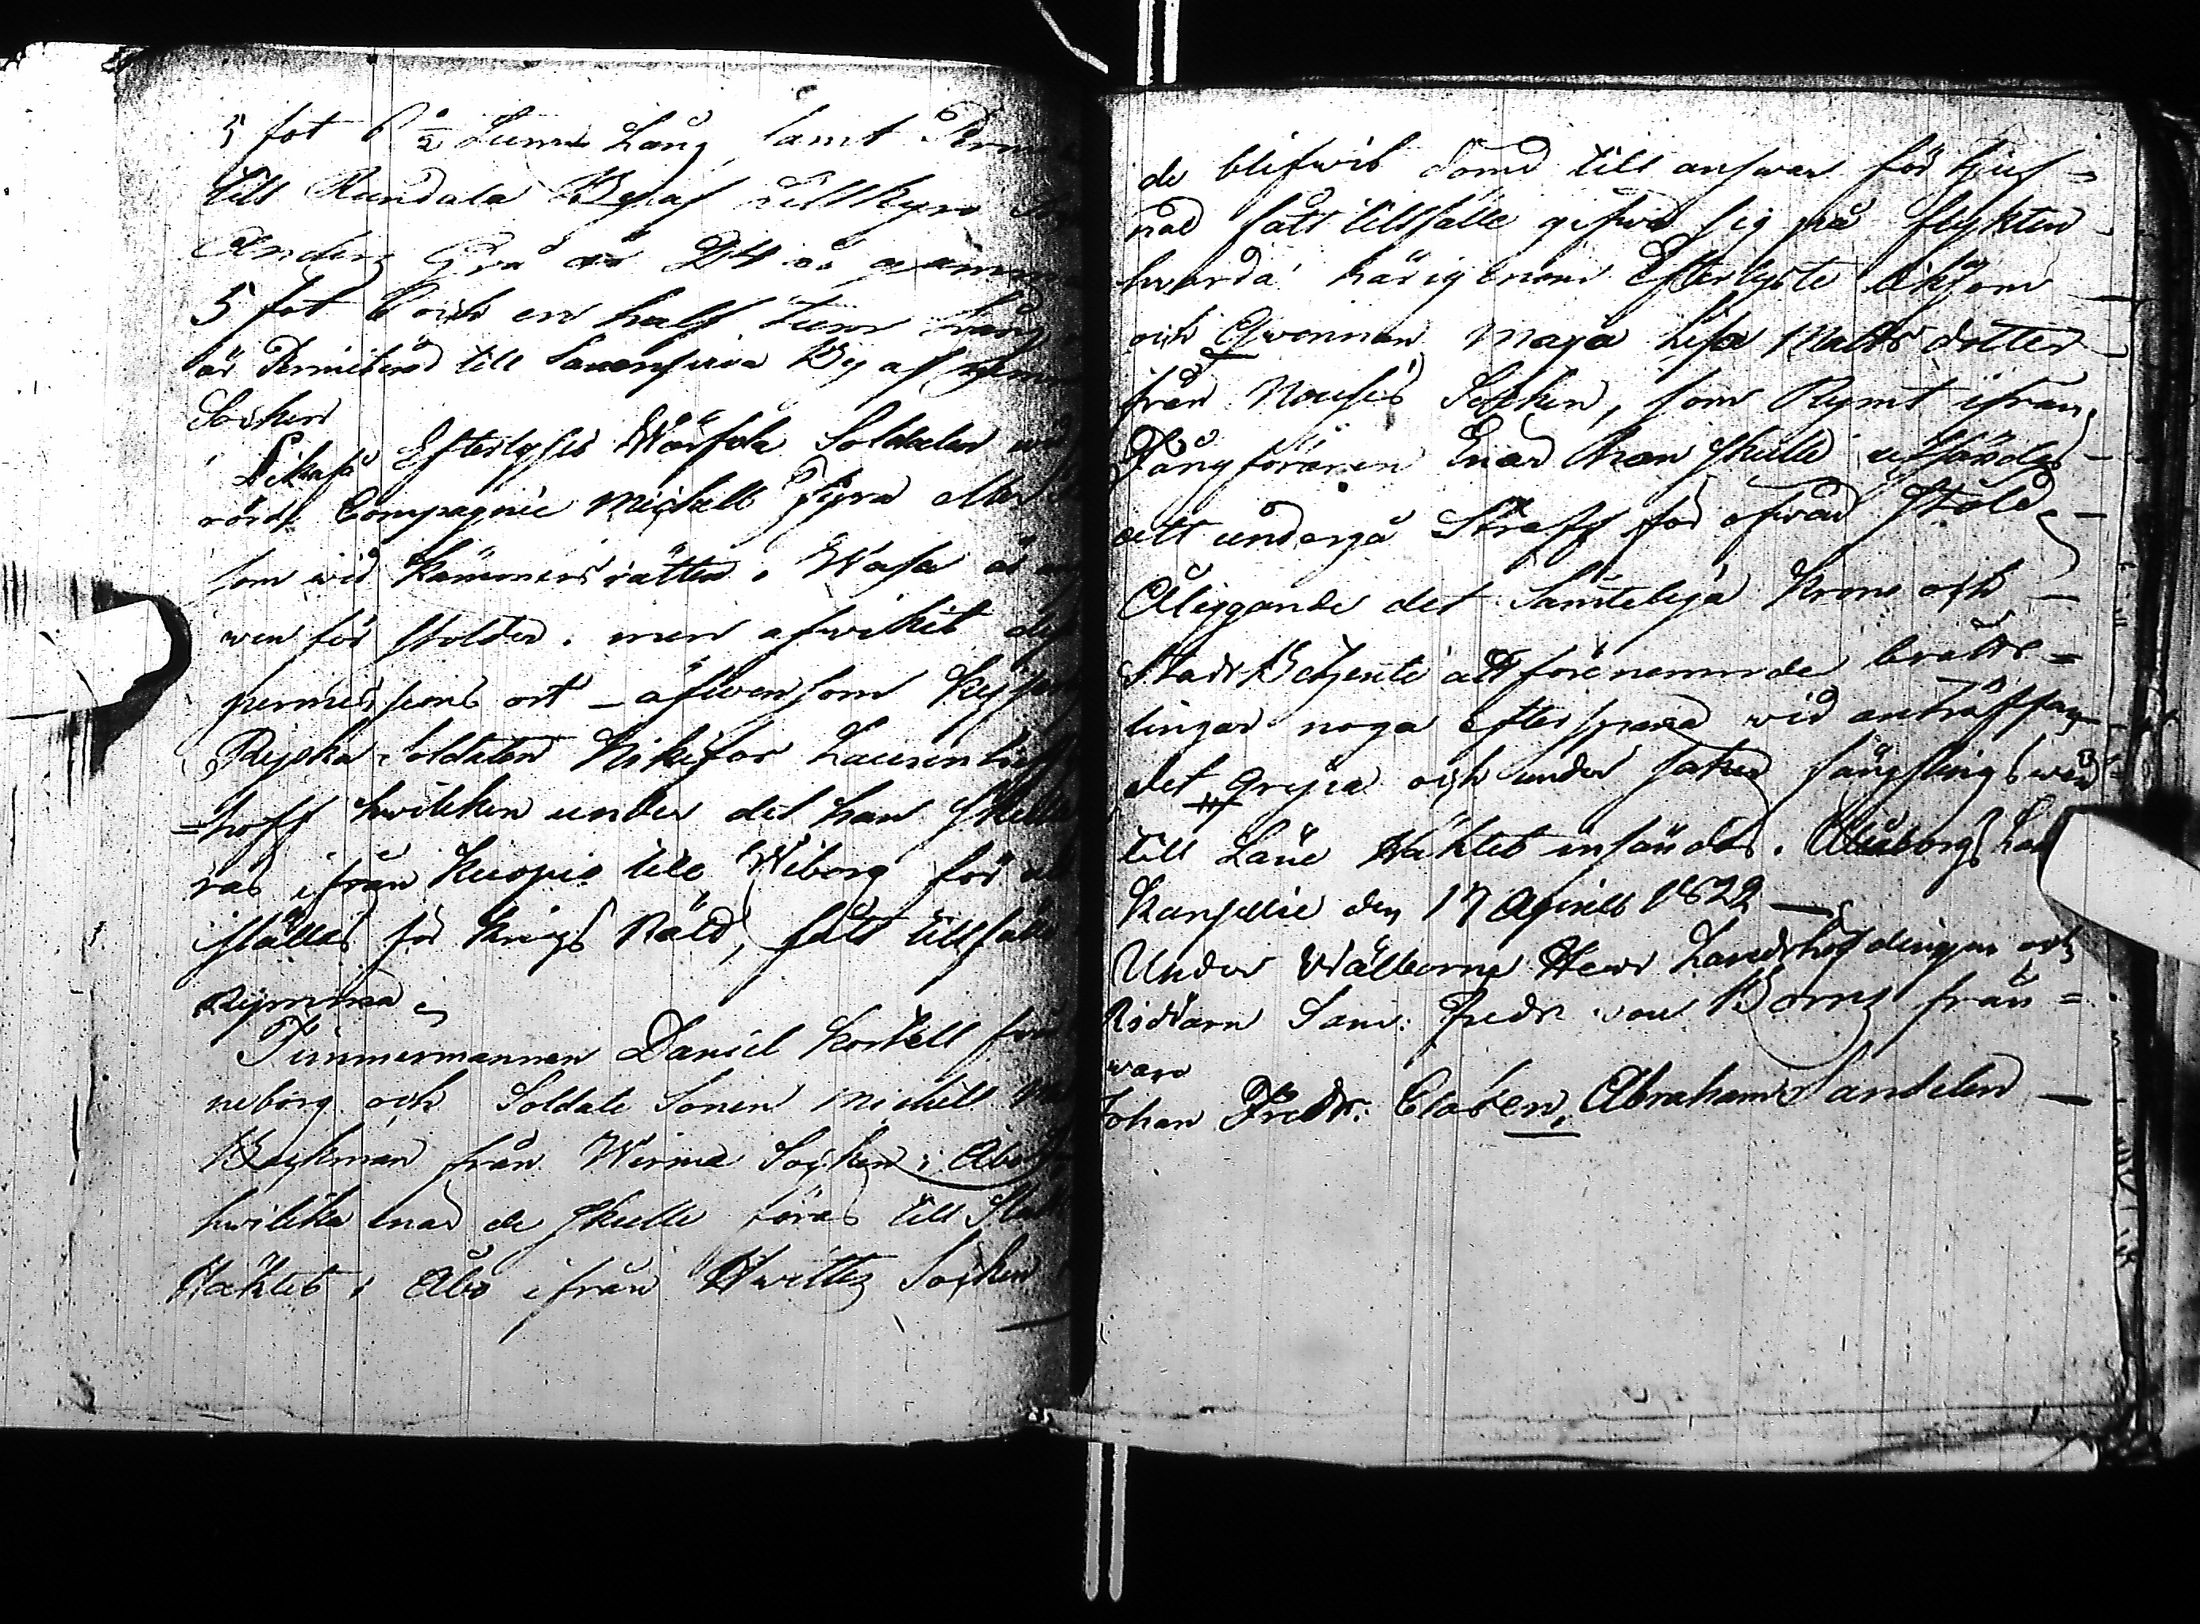 5 fot 6 ½ Tum Lång samt Perm
till Randala By af Lillkyro
Anders Grå är 24 år gammal
5 fot 6 och en half tum lång
är Permitterad till By af
Socken
Likaså Efterlyses Wärfvde Soldaten wid
rörde Compagnie Michell Fyra
som wid Kämners rätten i Wasa är
wen för stölder. men afwikit
permissions ort – äfwensom
Ryska Soldaten Nikifor
=hoff hwilcken under det han skulle
ras ifrån Kuopio till Wiborg för at
ställas för Krigs Rätt, fått tillfälle
Rymma,
Timmermannen Daniel Korkell från
neborg och Soldate Sonen Michell
Brykman från Wirmo Socken i Åbo
hwilcka enär de skulle föras till
Häktet i Åbo ifrån Hwittis Socken
de blifwit dömd till answar för tjuf=
nad fått tillfälle gifwa sig på flykten
hwarda härigenom Efterlyste liksom
och Qwinnan Maja Lisa Matts dotter
från Nousis Socken, som Rymt ifrån
Fångföraren Enär hon skulle afsändas
att undergå Straff för öfwad Stöld,
Åliggande det Samtelige Krono och
Stads Betjente att förenemnde brotts=
lingar noga efterspana wid anträffan
det gripa och under säker fångslings wård
till Läne Häktet insändas. Uleåborgs
Kansellie den 17 Aprill 1822
Under Wälborne Herr Landshöfdingen och
Riddarn Sam: Fredr von Borns från=
waro
Johan Fredr: Clasen, Abraham Sandelin